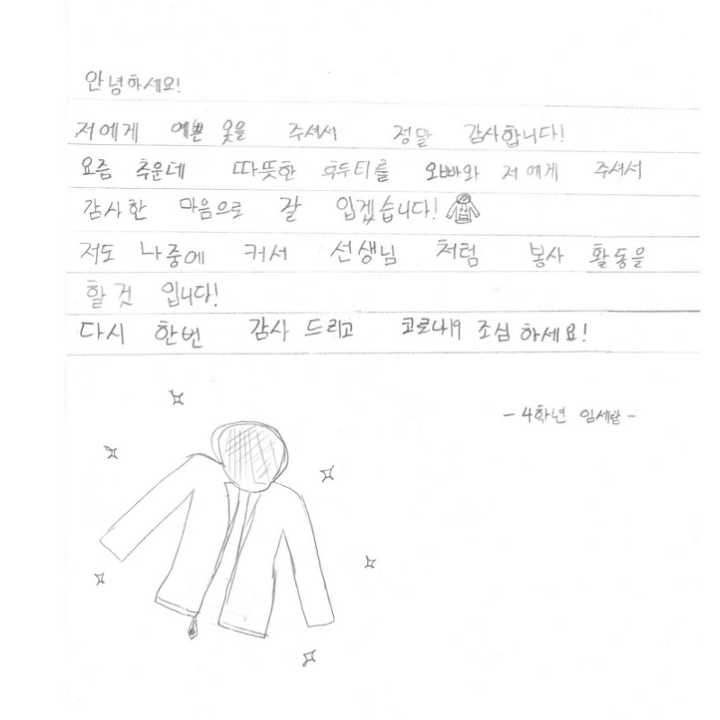 안녕하세요!
저에게 예쁜 옷을 주셔서 정말 감사합니다!
요즘 추운데 따뜻한 후두티를 오빠와 저에게 주셔서
감사한 마음으로 잘 입겠습니다!
저도 나중에 커서 선생님 처럼 봉사 활동을
할 것 입니다!
다시 한번 감사 드리고 코로나19 조심 하세요!
- 4학년 임세랑 -